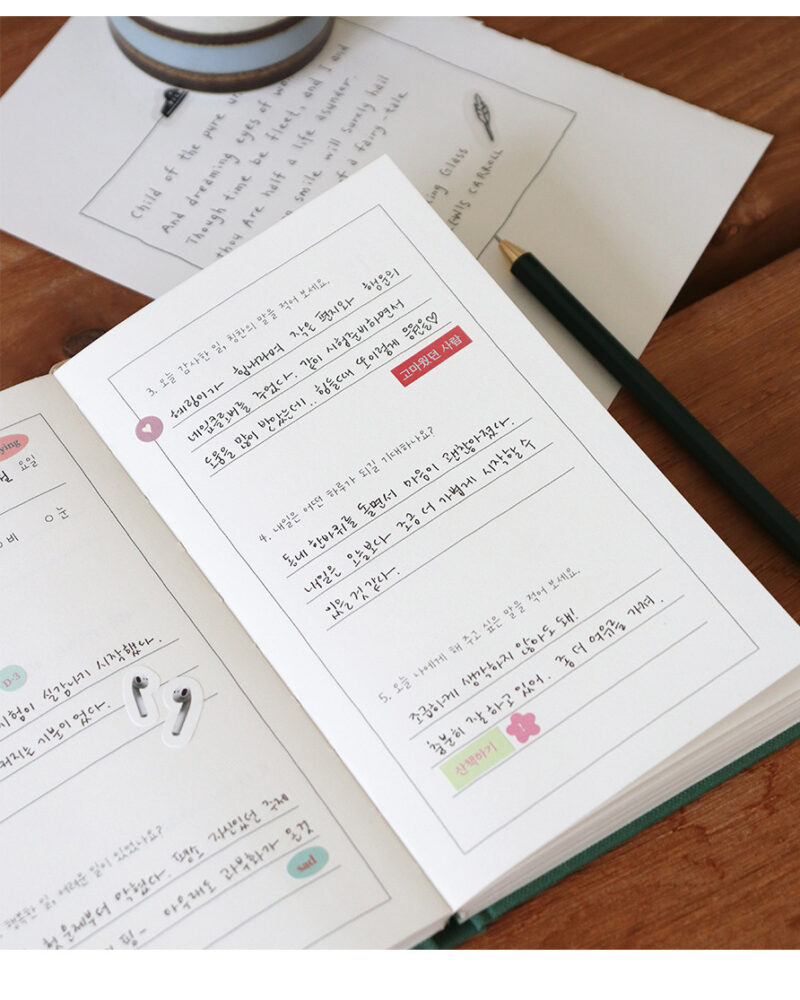 Child of the pure
And dreaming eyes of
Though time be fleet, and I and
thou Are half a life asunder.
smile will surely hail
of a fairy-tale
Glass
LEWIS CARROLL
3. 오늘 감사한 일, 칭찬의 말을 적어 보세요.
혜림이가 힘내라며 작은 편지와 행운의
네잎클로버를 주었다. 같이 시험준비하면서
도움을 많이 받았는데.. 힘들때 또 이렇게 응원을♡
고마웠던 사람
4. 내일은 어떤 하루가 되길 기대하나요?
동네 한바퀴를 돌면서 마음이 괜찮아졌다.
내일은 오늘보다 조금 더 가볍게 시작할 수
있을 것 같다.
5. 오늘 나에게 해 주고 싶은 말을 적어 보세요.
조급하게 생각하지 않아도 돼!
충분히 잘 하고 있어. 좀 더 여유를 가져.
산책하기
!
ying
요일
비 ○눈
D-3
시험이 실감나기 시작했다.
지는 기분이었다.
행복한 일, 어려운 일이 있었나요?
평소 자신있던 주제
첫 문제부터 막혔다.
아무래도 과부하가 온것
sad
핑-